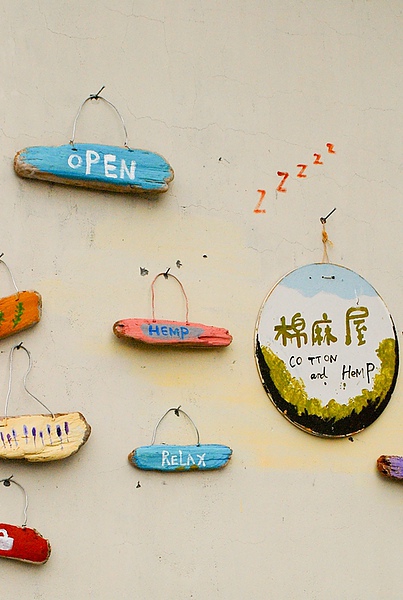 OPEN
z z z z z
HEMP
棉麻屋
COTTON
and HEMP
RELAX